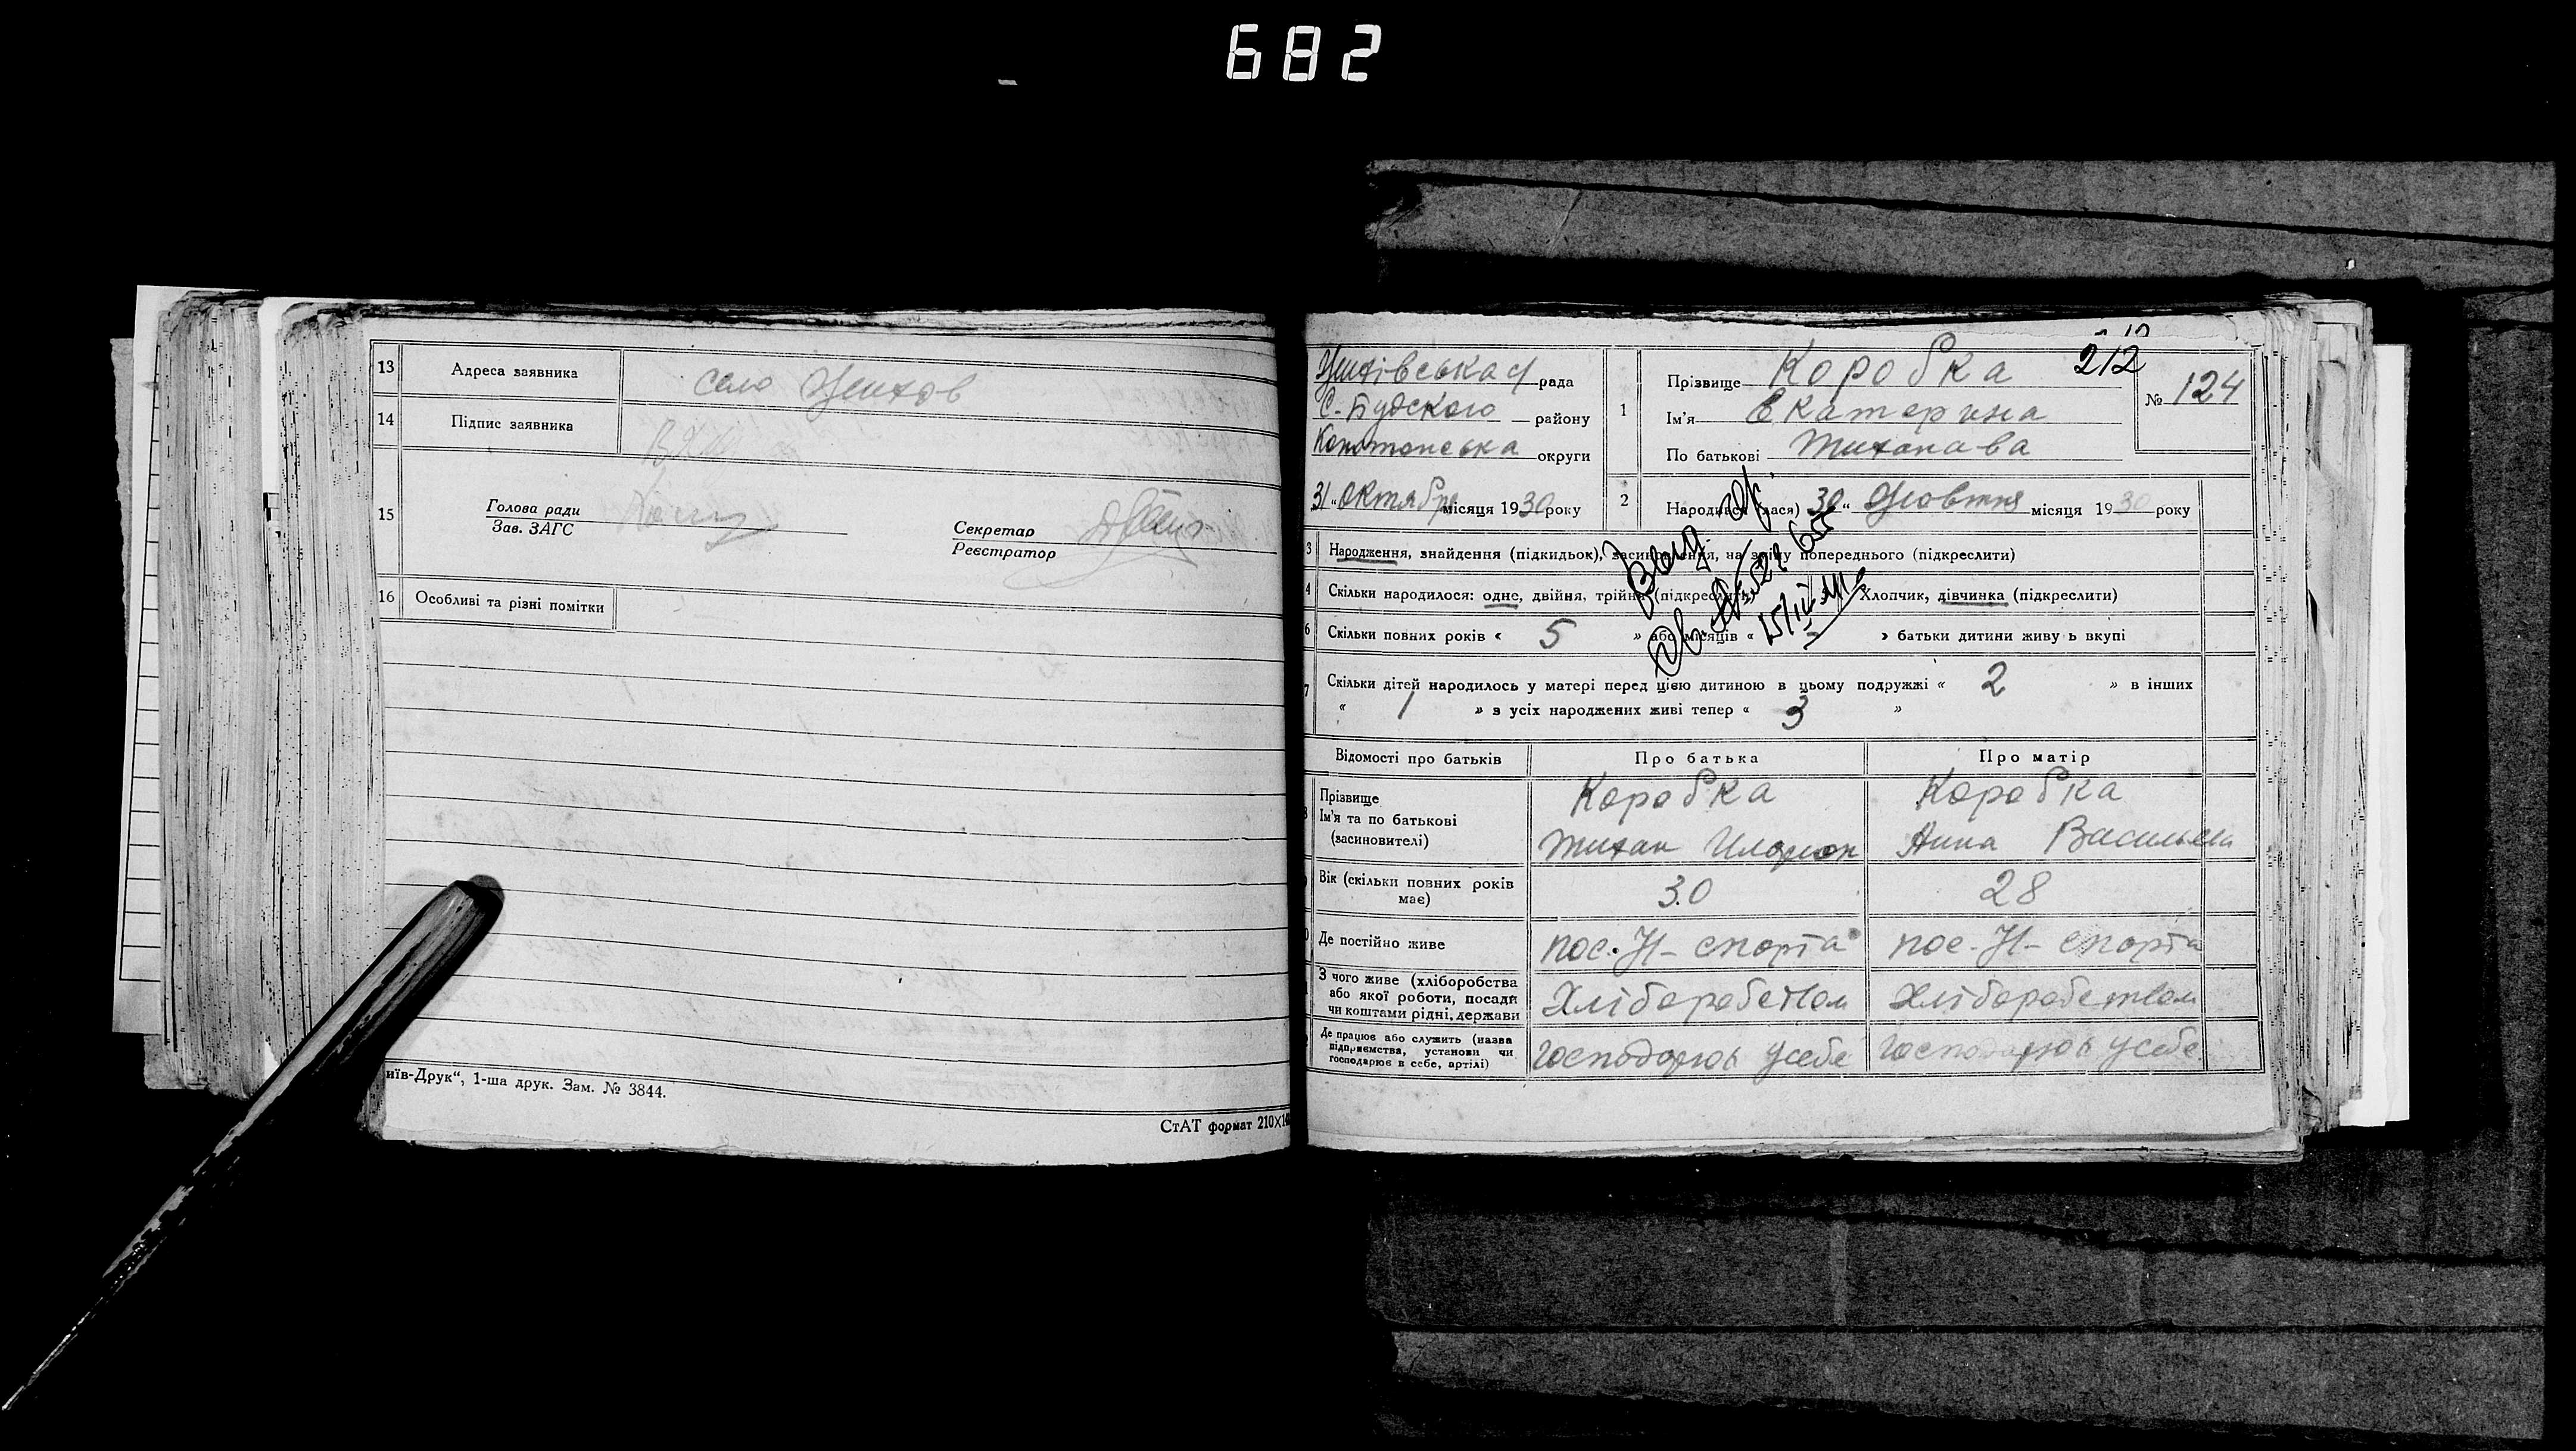 682
13 Адреса заявника село
14 Підпис заявника
15 Голова ради
Зав. ЗАГС
Секретар
Реєстратор
16 Особливі та різні помітки
иїв-Друк“, 1-ша друк. Зам. № 3844.
СтАТ формат 210×14
212
рада
С-Будского району
округи
31 “ октября місяця 1930 року
1 Прізвище Коробка
Ім'я Екатерина
По батькові Тихонова
№ 124
2 Народився (лася) 30 “ Жовтня місяця 1930 року
3 Народження, знайдення (підкидьок), засиновлення, на зміну попереднього (підкреслити)
4 Скільки народилося: одне, двійня, трійня (підкреслити) Хлопчик, дівчинка (підкреслити)
6 Скільки повних років « 5 » або місяців « » батьки дитини живу ь вкупі
7 Скільки дітей народилось у матері перед цією дитиною в цьому подружжі « 2 » в інших
« 1 » з усіх народжених живі тепер « 3 »
Відомості про батьків Про батька Про матір
Прізвище
Ім'я та по батькові
(засиновителі)
Коробка
Тихон Иларион
Коробка
Анна Васильевн
Вік (скільки повних років
має)
30 28
Де постійно живе
пос. пос.
З чого живе (хліборобства
або якої роботи, посади
чи коштами рідні, держави
Хліборобством Хліборобством
Де працює або служить (назва
підприємства, установи чи
господарює в себе, артілі)
Господарюв усебе Господарюв усебе